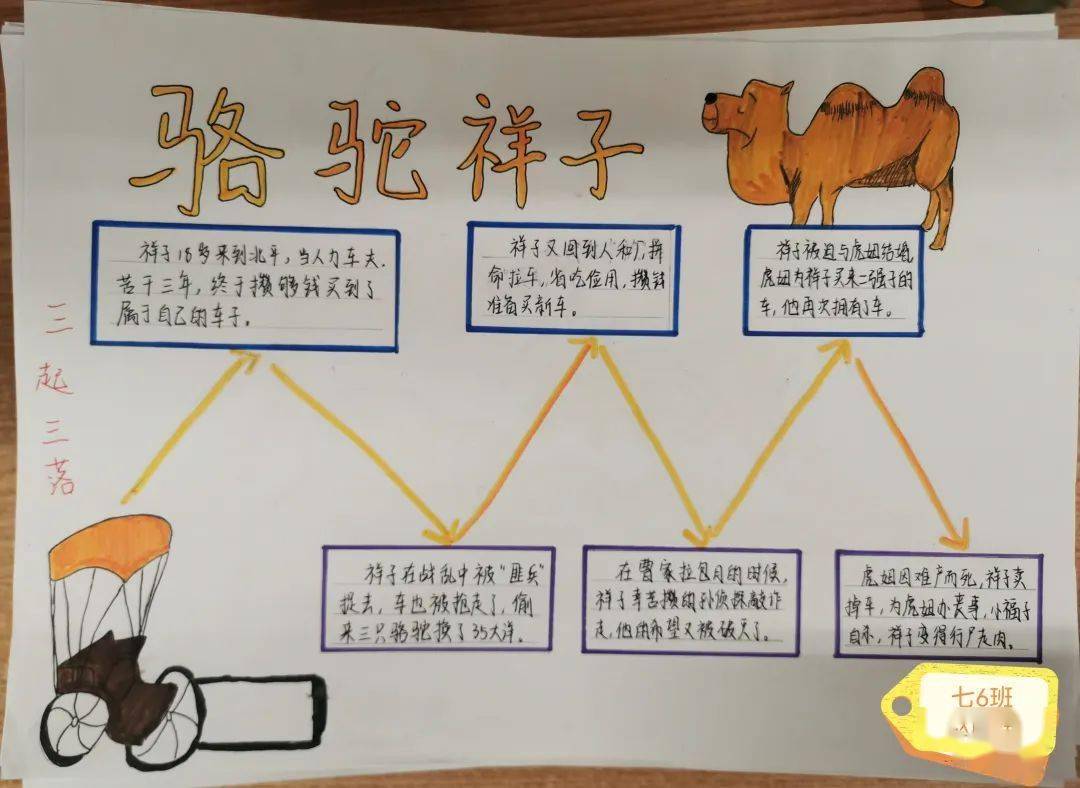 骆驼祥子
三起三落
祥子18岁来到北平，当人力车夫.
苦干三年，终于攒够钱买到了
属于自己的车子。
祥子又回到人“和”厂，拼
命拉车，省吃俭用，攒钱
准备买新车。
祥子被迫与虎妞结婚,
虎妞为祥子买来二强子的
车，他再次拥有了车。
祥子在战乱中被“匪兵”
捉去，车也被抢走了，偷
来三只骆驼换了35大洋。
在曹家拉包月的时候，
祥子辛苦攒的
侦探敲诈
走，他的希望又被破灭了。
虎妞因难产而死，祥子卖
掉车，为虎妞办丧事，小福子
自杀，祥子变得行尸走肉。
七6班